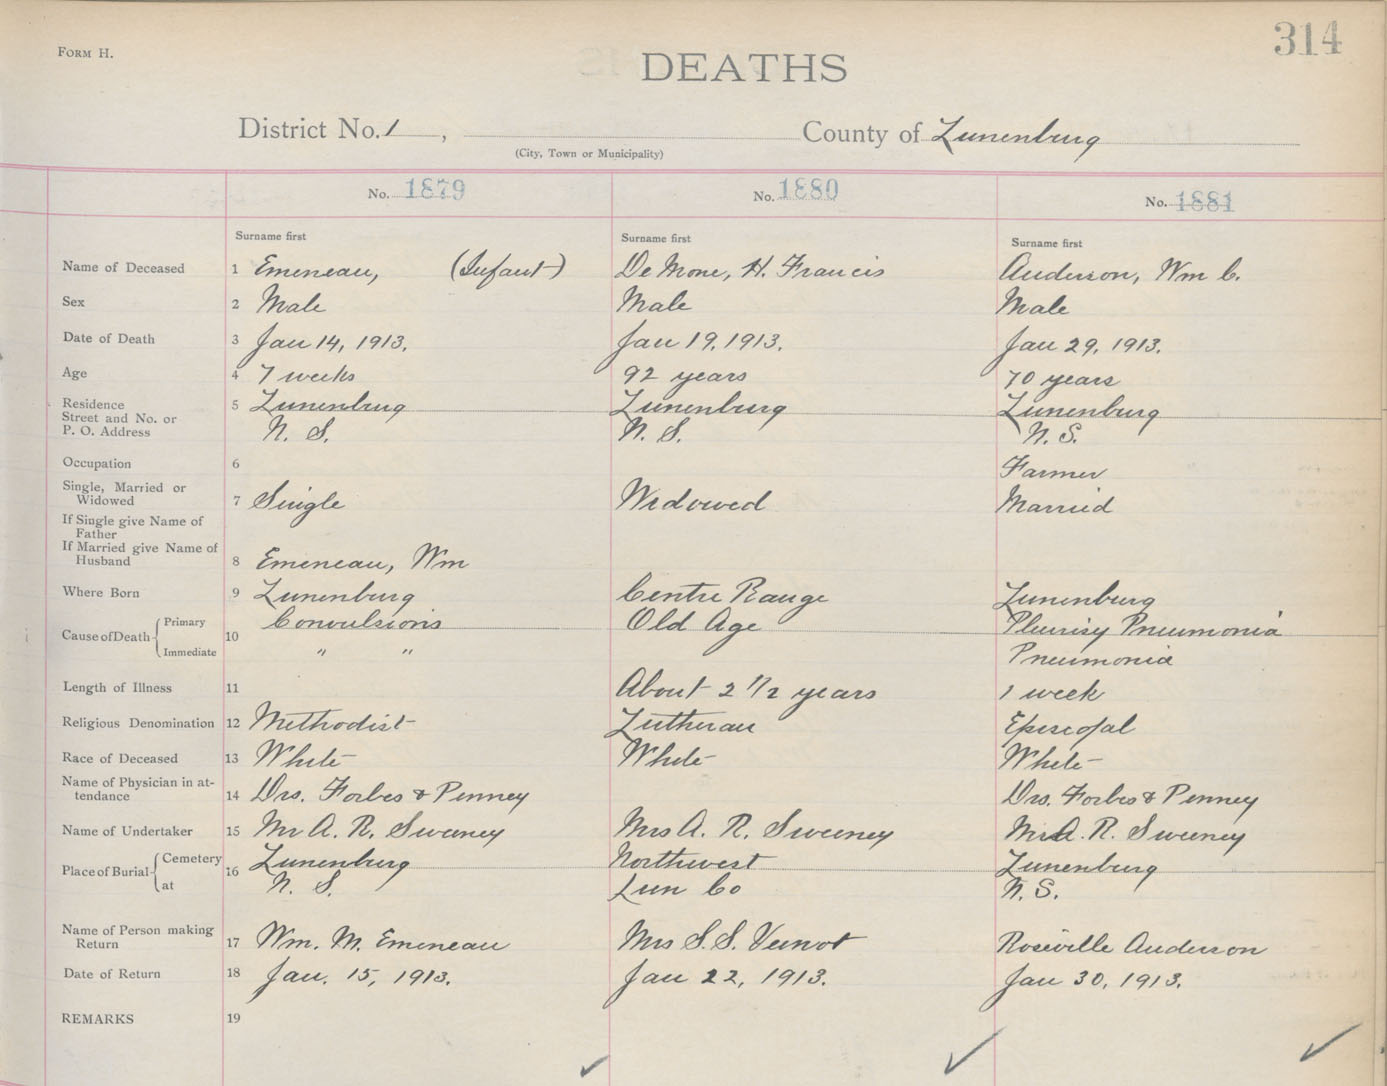 314
FORM H.
DEATHS
District No. 1 , County of Lunenburg
(City, Town or Municipality)
No. 1879 No. 1880 No. 1881
Surname first Surname first Surname first
Name of Deceased 1 Emeneau, (Infant) DeMone, H. Francis Anderson, Wm C.
Sex 2 Male Male Male
Date of Death 3 Jan 14, 1913. Jan 19, 1913. Jan 29, 1913.
Age 4 7 weeks 92 years 70 years
Residence 5 Lunenburg Lunenburg Lunenburg
Street and No. or
P. O. Address N. S. N. S. N. S.
Occupation 6 Farmer
Single, Married or
Widowed 7 Single Widowed Married
If Single give Name of
Father
If Married give Name of
Husband 8 Emeneau, Wm
Where Born 9 Lunenburg Centre Range Lunenburg
Cause of Death Primary 10 Convulsions Old Age Pleurisy Pneumonia
Immediate " " Pneumonia
Length of Illness 11 About 2 1/2 years 1 week
Religious Denomination 12 Methodist Lutheran Episcopal
Race of Deceased 13 White White White
Name of Physician in at-
tendance 14 Drs. Forbes & Penney Drs. Forbes & Penney
Name of Undertaker 15 Mr A. R. Sweeney Mrs A. R. Sweeney Mr A. R. Sweeney
Place of Burial Cemetery 16 Lunenburg Northwest Lunenburg
at N. S. Lun Co N. S.
Name of Person making
Return 17 Wm. M. Emeneau Mrs S. S. Veinot Roseville Anderson
Date of Return 18 Jan. 15, 1913. Jan 22, 1913. Jan 30, 1913.
REMARKS 19